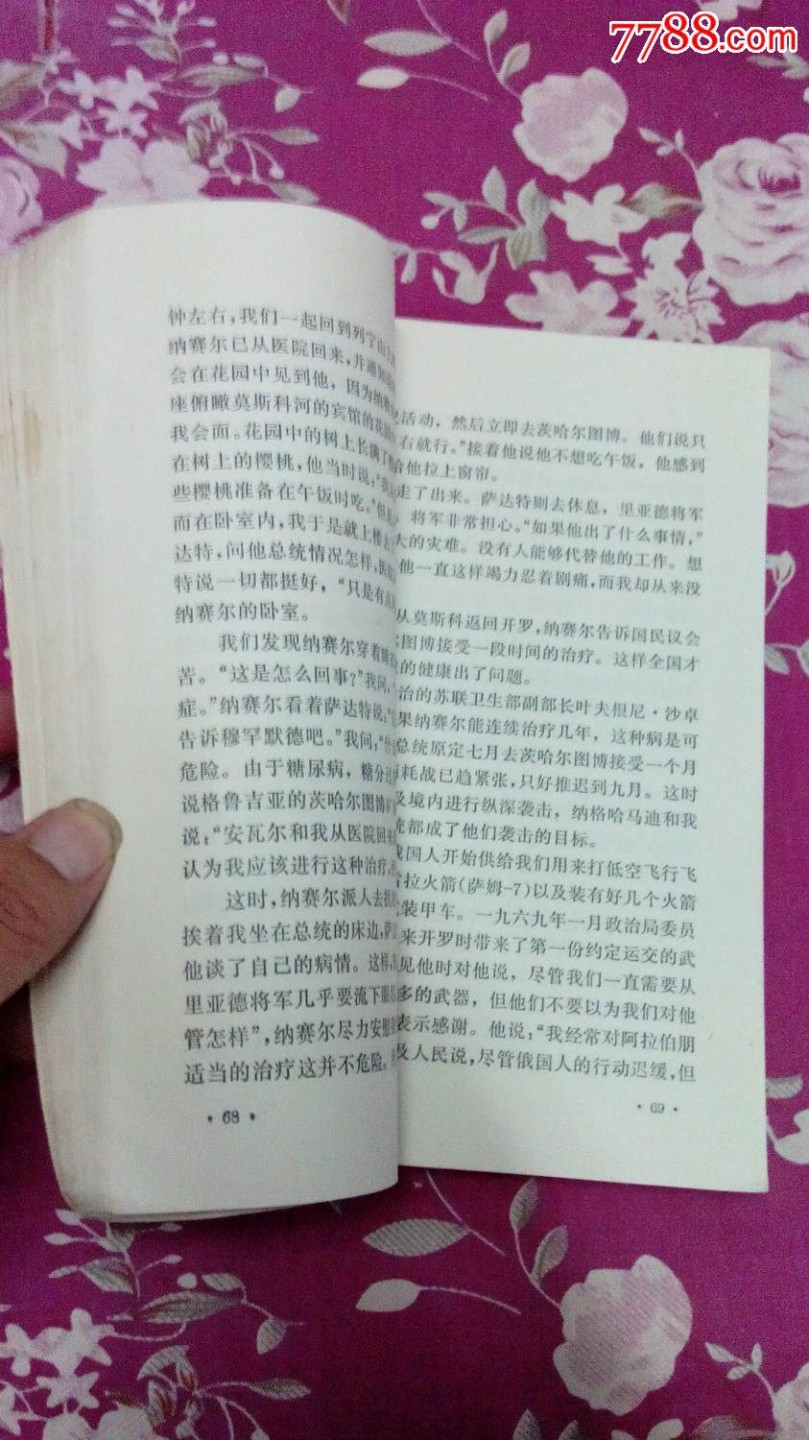 7788.com
钟左右,我们一起回到列宁山
纳赛尔已从医院回来,并通知
会在花园中见到他,因为纳
座俯瞰莫斯科河的宾馆的花
我会面。花园中的树上长满了
在树上的樱桃,他当时说:“我
些樱桃准备在午饭时吃。”但
而在卧室内,我于是就上楼去
达特,问他总统情况怎样,医
特说一切都挺好,“只是有点
纳赛尔的卧室。
我们发现纳赛尔穿着睡
苦。“这是怎么回事?”我问,
症。”纳赛尔看着萨达特说:
告诉穆罕默德吧。”我问:“什
危险。由于糖尿病,糖分
说格鲁吉亚的茨哈尔图博
说:“安瓦尔和我从医院回
认为我应该进行这种治疗,
这时,纳赛尔派人去
挨着我坐在总统的床边,萨
他谈了自己的病情。这样,
里亚德将军几乎要流下眼
管怎样”,纳赛尔尽力安慰
适当的治疗这并不危险。
·68·
活动,然后立即去茨哈尔图博。他们说只
右就行。”接着他说他不想吃午饭,他感到
给他拉上窗帘。
走了出来。萨达特则去休息,里亚德将军
,将军非常担心。“如果他出了什么事情,”
大的灾难。没有人能够代替他的工作。想
他一直这样竭力忍着剧痛,而我却从来没
从莫斯科返回开罗,纳赛尔告诉国民议会
图博接受一段时间的治疗。这样全国才
的健康出了问题。
治的苏联卫生部副部长叶夫根尼·沙卓
果纳赛尔能连续治疗几年,这种病是可
总统原定七月去茨哈尔图博接受一个月
消耗战已趋紧张,只好推迟到九月。这时
及境内进行纵深袭击,纳格哈马迪和我
都成了他们袭击的目标。
俄国人开始供给我们用来打低空飞行飞
拉火箭(萨姆-7)以及装有好几个火箭
装甲车。一九六九年一月政治局委员
来开罗时带来了第一份约定运交的武
见他时对他说,尽管我们一直需要从
多的武器,但他们不要以为我们对他
表示感谢。他说:“我经常对阿拉伯朋
及人民说,尽管俄国人的行动迟缓,但
·69·